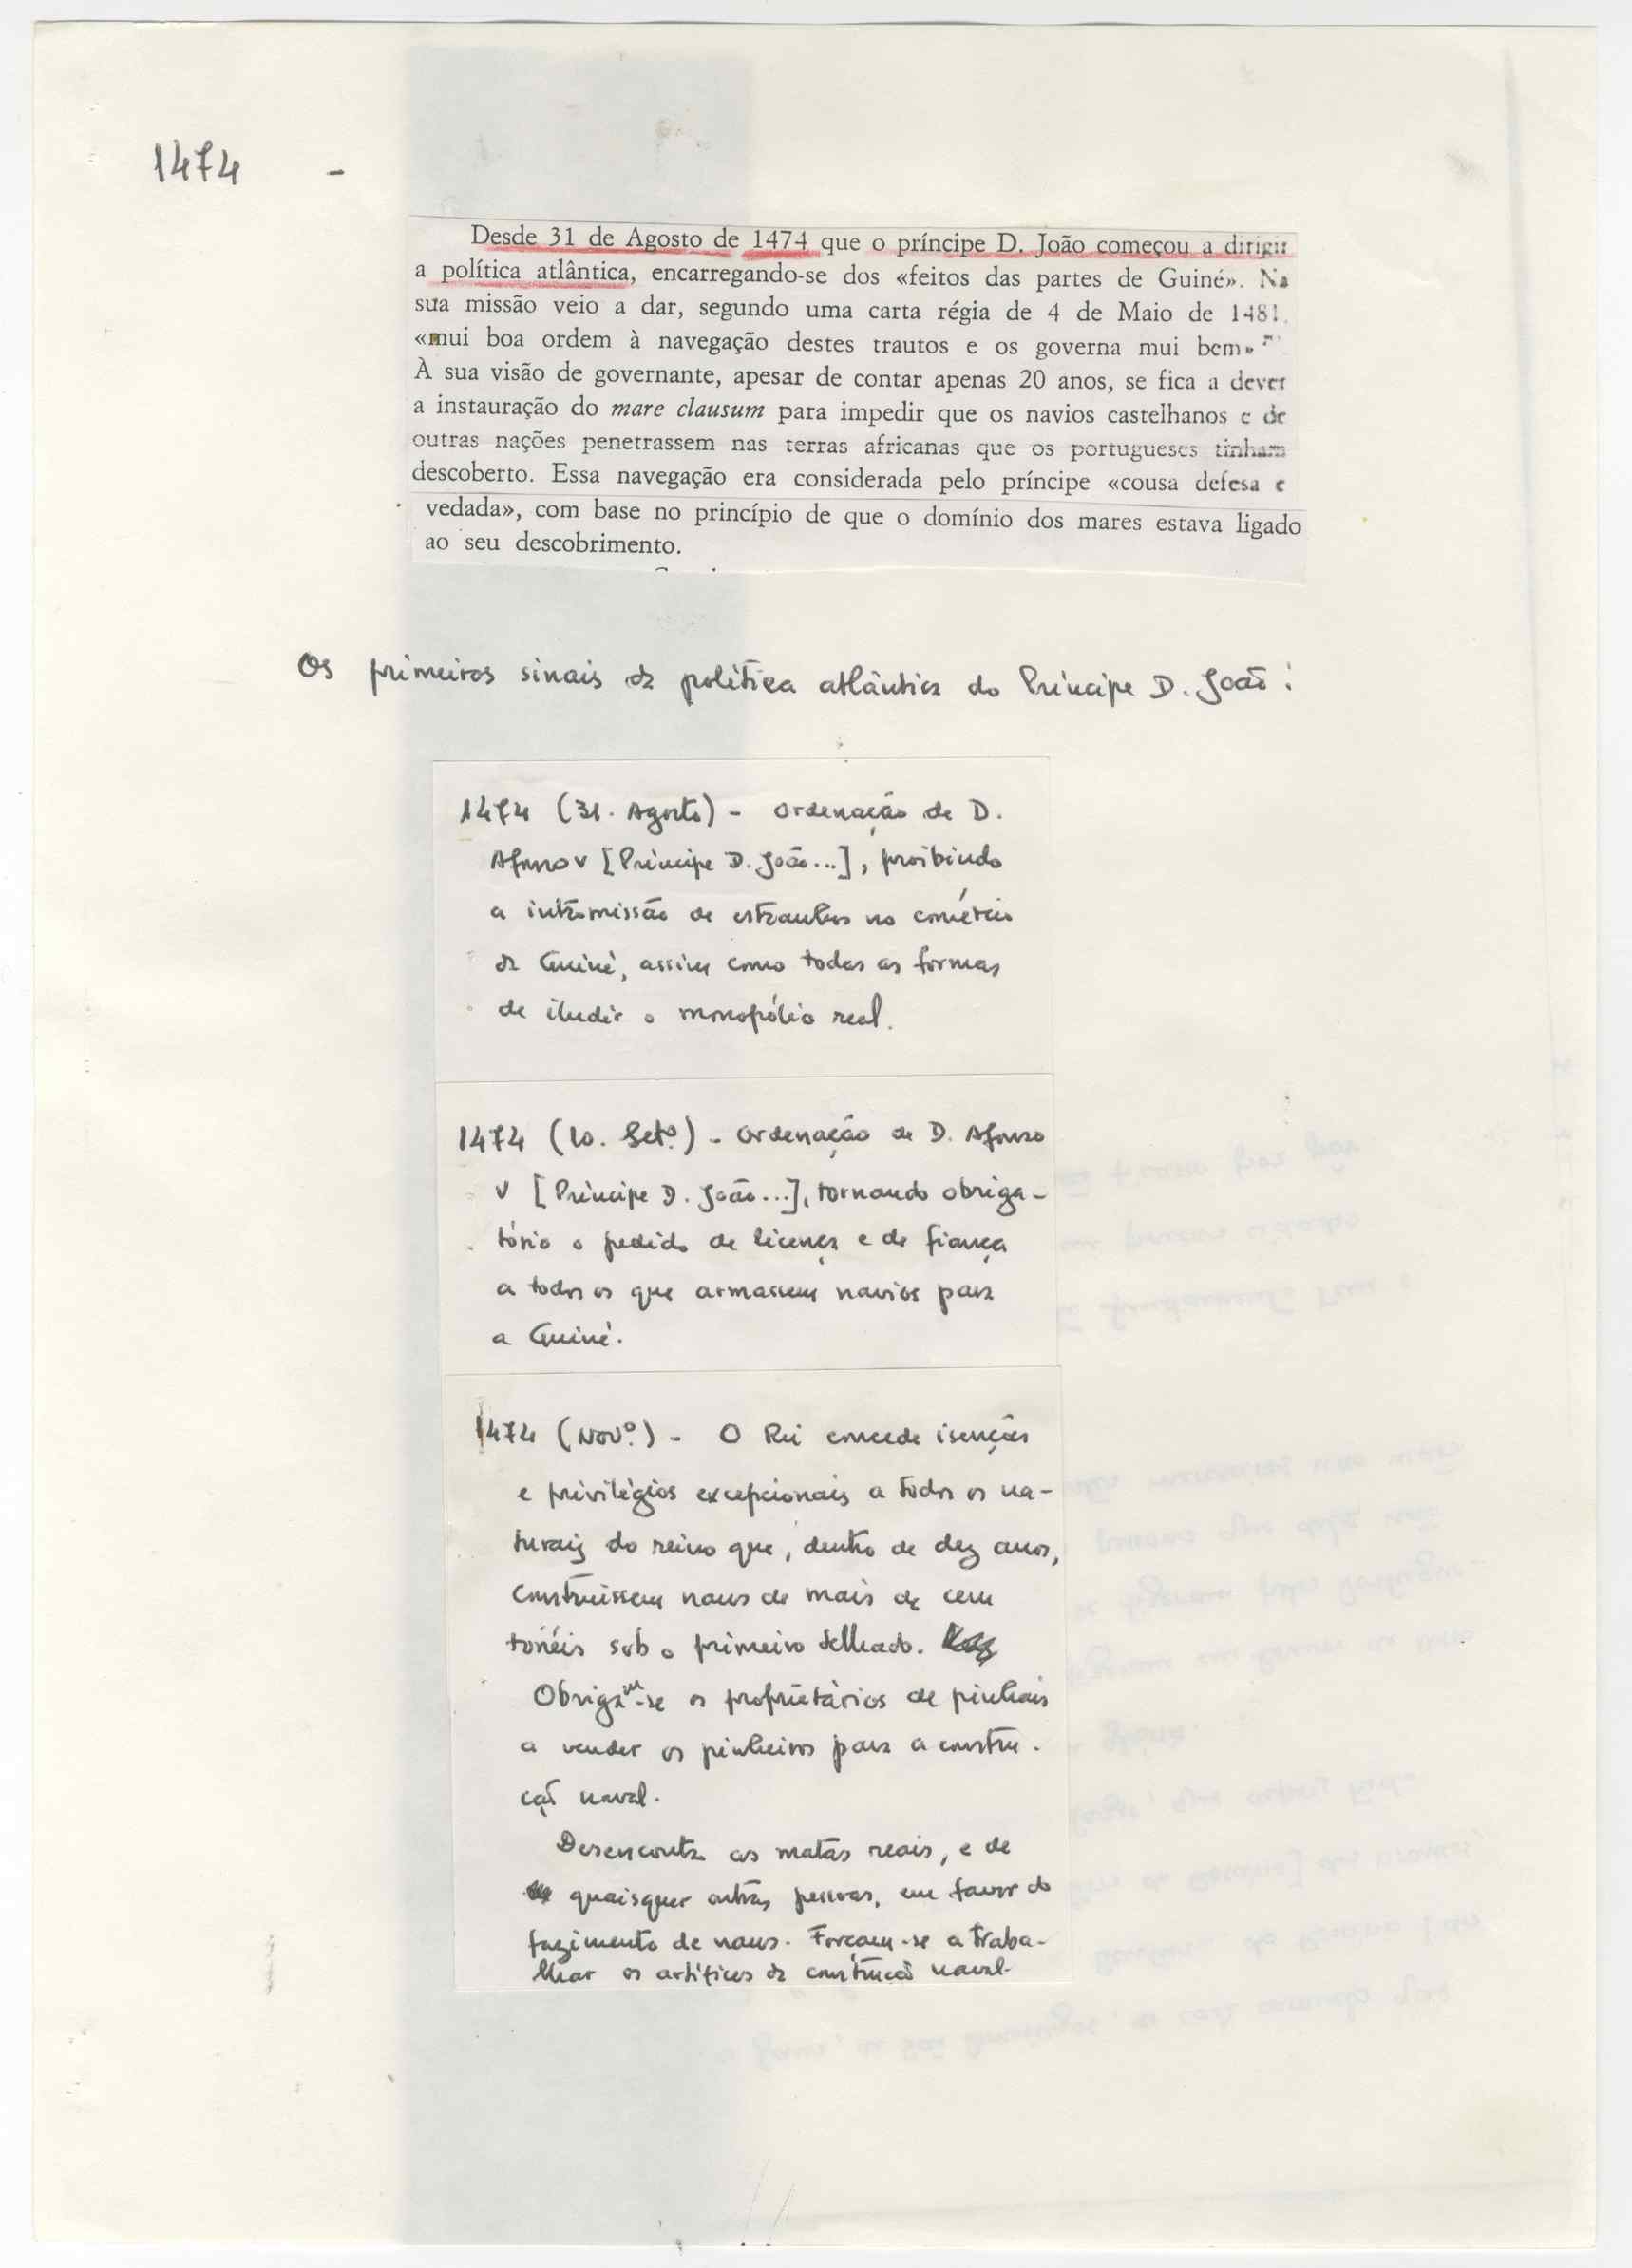 1474 -
Desde 31 de Agosto de 1474 que o príncipe D. João começou a dirigir
a política atlântica, encarregando-se dos «feitos das partes de Guiné». Na
sua missão veio a dar, segundo uma carta régia de 4 de Maio de 1481,
«mui boa ordem à navegação destes trautos e os governa mui bem»
À sua visão de governante, apesar de contar apenas 20 anos, se fica a dever
a instauração do mare clausum para impedir que os navios castelhanos e de
outras nações penetrassem nas terras africanas que os portugueses tinham
descoberto. Essa navegação era considerada pelo príncipe «cousa defesa e
vedada», com base no princípio de que o domínio dos mares estava ligado
ao seu descobrimento.
Os primeiros sinais da política atlântica do Príncipe D. João:
1474 (31. Agosto) - Ordenação de D.
Afonso V [Príncipe D. João...], proibindo
a intromissão de estranhos no comércio
da Guiné, assim como todas as formas
de iludir o monopólio real.
1474 (10. Setº.) - Ordenação de D. Afonso
V [Príncipe D. João...], tornando obriga-
tório o pedido de licença e de fiança
a todos os que armassem navios para
a Guiné.
1474 (Novº.) - O Rei concede isenções
e privilégios excepcionais a todos os na-
turais do reino que, dentro de dez anos,
construissem naus de mais de cem
tonéis sob o primeiro telhado.
Obrigam-se os proprietários de pinhais
a vender os pinheiros para a constru-
ção naval.
Desencouta as matas reais, e de
quaisquer outras pessoas, em favor do
fazimento de naus. Forçam-se a traba-
lhar os artífices da construção naval.